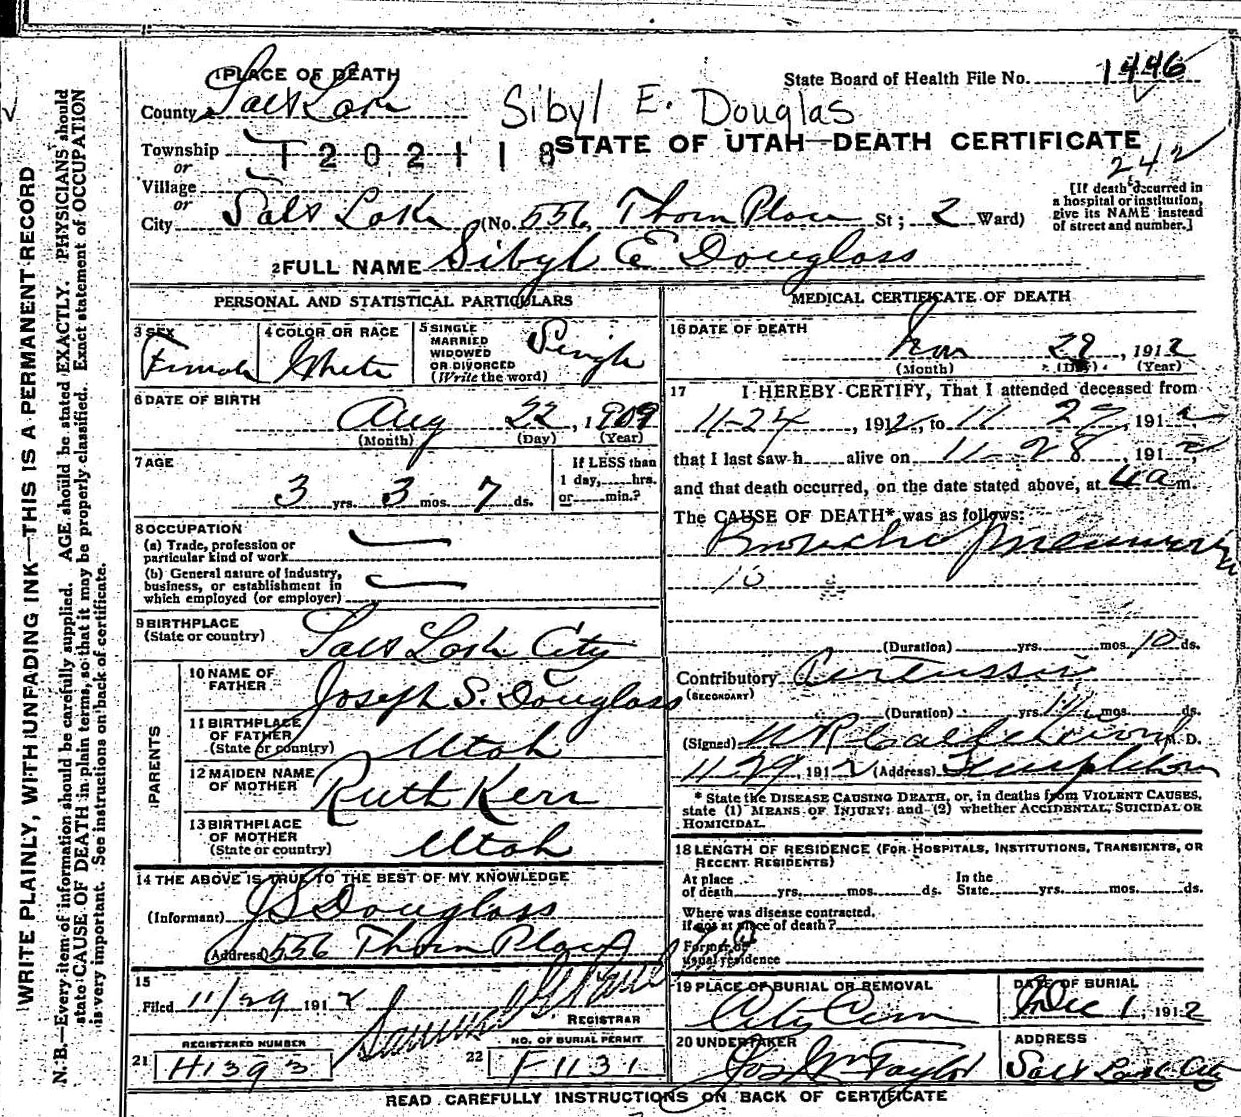 WRITE PLAINLY, WITH UNFADING INK—THIS IS A PERMANENT RECORD
N. B.—Every item of information should be carefully supplied. AGE should be stated EXACTLY. PHYSICIANS should
state CAUSE OF DEATH in plain terms, so that it may be properly classified. Exact statement of OCCUPATION
is very important. See instructions on back of certificate.
1 PLACE OF DEATH
State Board of Health File No. 1446
County Salt Lake
Sibyl E. Douglas
Township
or
STATE OF UTAH—DEATH CERTIFICATE
242
Village
or
City Salt Lake (No. 556, Thorn Place St; 2 Ward)
[If death occurred in
a hospital or institution,
give its NAME instead
of street and number.]
2 FULL NAME Sibyl E Douglass
PERSONAL AND STATISTICAL PARTICULARS
3 SEX Female
4 COLOR OR RACE White
5 SINGLE
MARRIED
WIDOWED
OR DIVORCED
(Write the word) Single
6 DATE OF BIRTH
Aug 22, 1909
(Month) (Day) (Year)
7 AGE
3 yrs. 3 mos. 7 ds.
If LESS than
1 day, hrs.
or min.?
8 OCCUPATION
(a) Trade, profession or
particular kind of work
(b) General nature of industry,
business, or establishment in
which employed (or employer)
9 BIRTHPLACE
(State or country) Salt Lake City
PARENTS
10 NAME OF
FATHER Joseph S. Douglass
11 BIRTHPLACE
OF FATHER
(State or country) Utah
12 MAIDEN NAME
OF MOTHER Ruth Kerr
13 BIRTHPLACE
OF MOTHER
(State or country) Utah
14 THE ABOVE IS TRUE TO THE BEST OF MY KNOWLEDGE
(Informant) J S Douglass
(Address) 556 Thorn Place
15
Filed 11/29 1912
REGISTRAR
21 REGISTERED NUMBER
H1393
22 NO. OF BURIAL PERMIT
F1131
MEDICAL CERTIFICATE OF DEATH
16 DATE OF DEATH
Nov 29, 1912
(Month) (Day) (Year)
17 I HEREBY CERTIFY, That I attended deceased from
11-24, 1912, to 11 29, 1912
that I last saw h alive on 11-28, 1912
and that death occurred, on the date stated above, at 4 a m.
The CAUSE OF DEATH* was as follows:
Broncho pneumonia
(Duration) yrs. mos. 10 ds.
Contributory Pertussis
(SECONDARY)
(Duration) yrs. mos. ds.
(Signed) M. D.
11 29, 1912 (Address) Templeton
* State the DISEASE CAUSING DEATH, or, in deaths from VIOLENT CAUSES,
state (1) MEANS OF INJURY; and (2) whether ACCIDENTAL, SUICIDAL OR
HOMICIDAL.
18 LENGTH OF RESIDENCE (FOR HOSPITALS, INSTITUTIONS, TRANSIENTS, OR
RECENT RESIDENTS)
At place
of death yrs. mos. ds.
In the
State yrs. mos. ds.
Where was disease contracted,
if not at place of death?
Former or
usual residence
19 PLACE OF BURIAL OR REMOVAL
City Cem
DATE OF BURIAL
Dec 1, 1912
20 UNDERTAKER
Jos Wm Taylor
ADDRESS
Salt Lake City
READ CAREFULLY INSTRUCTIONS ON BACK OF CERTIFICATE